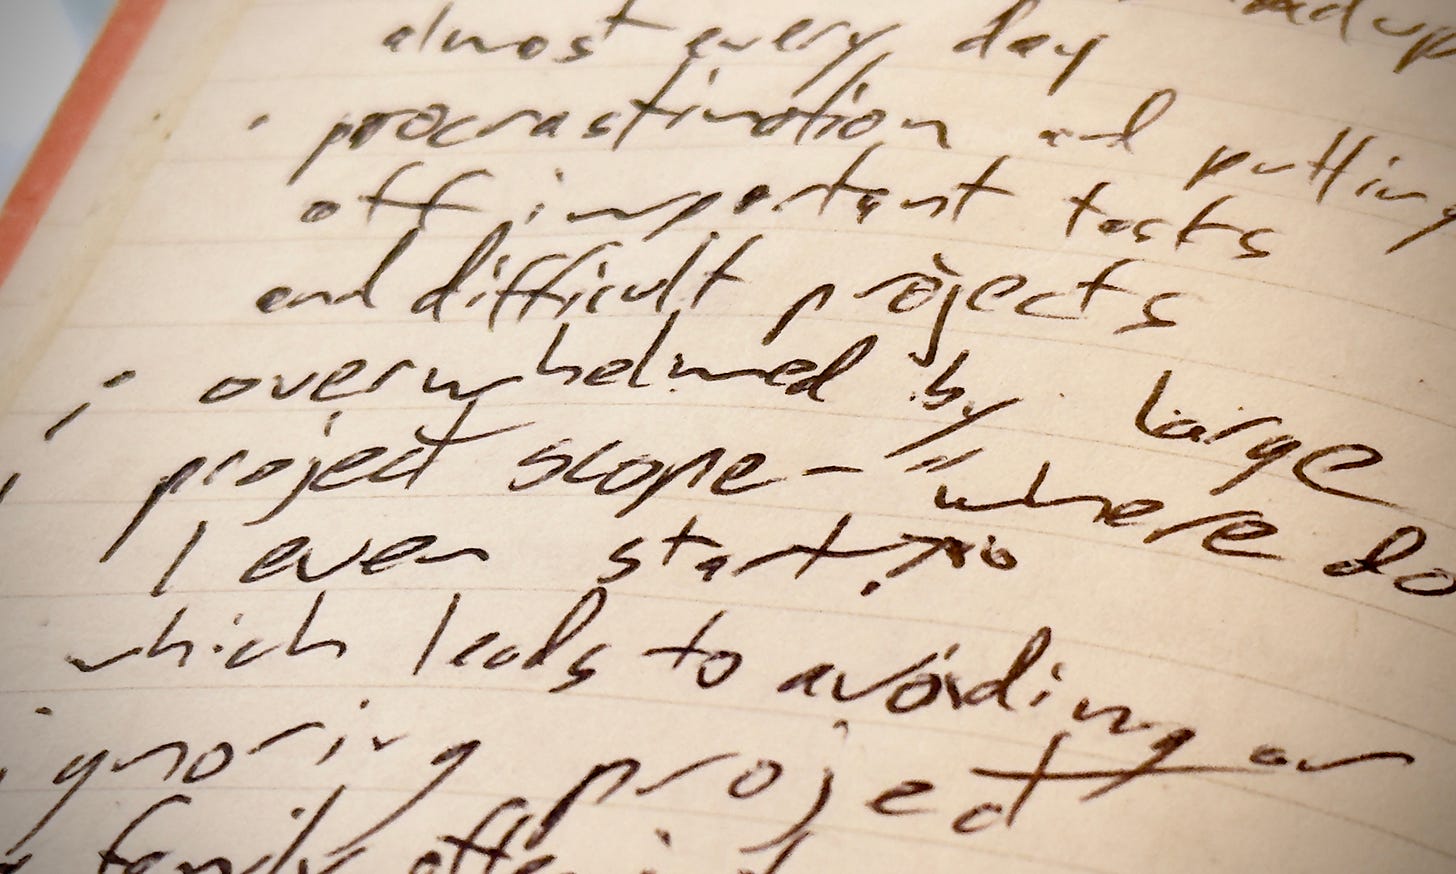 almost every day
· procrastination and putting
off important tasks
and difficult projects
; overwhelmed by large
project scope – "where do
I even start?"
which leads to avoiding or
ignoring project
family often